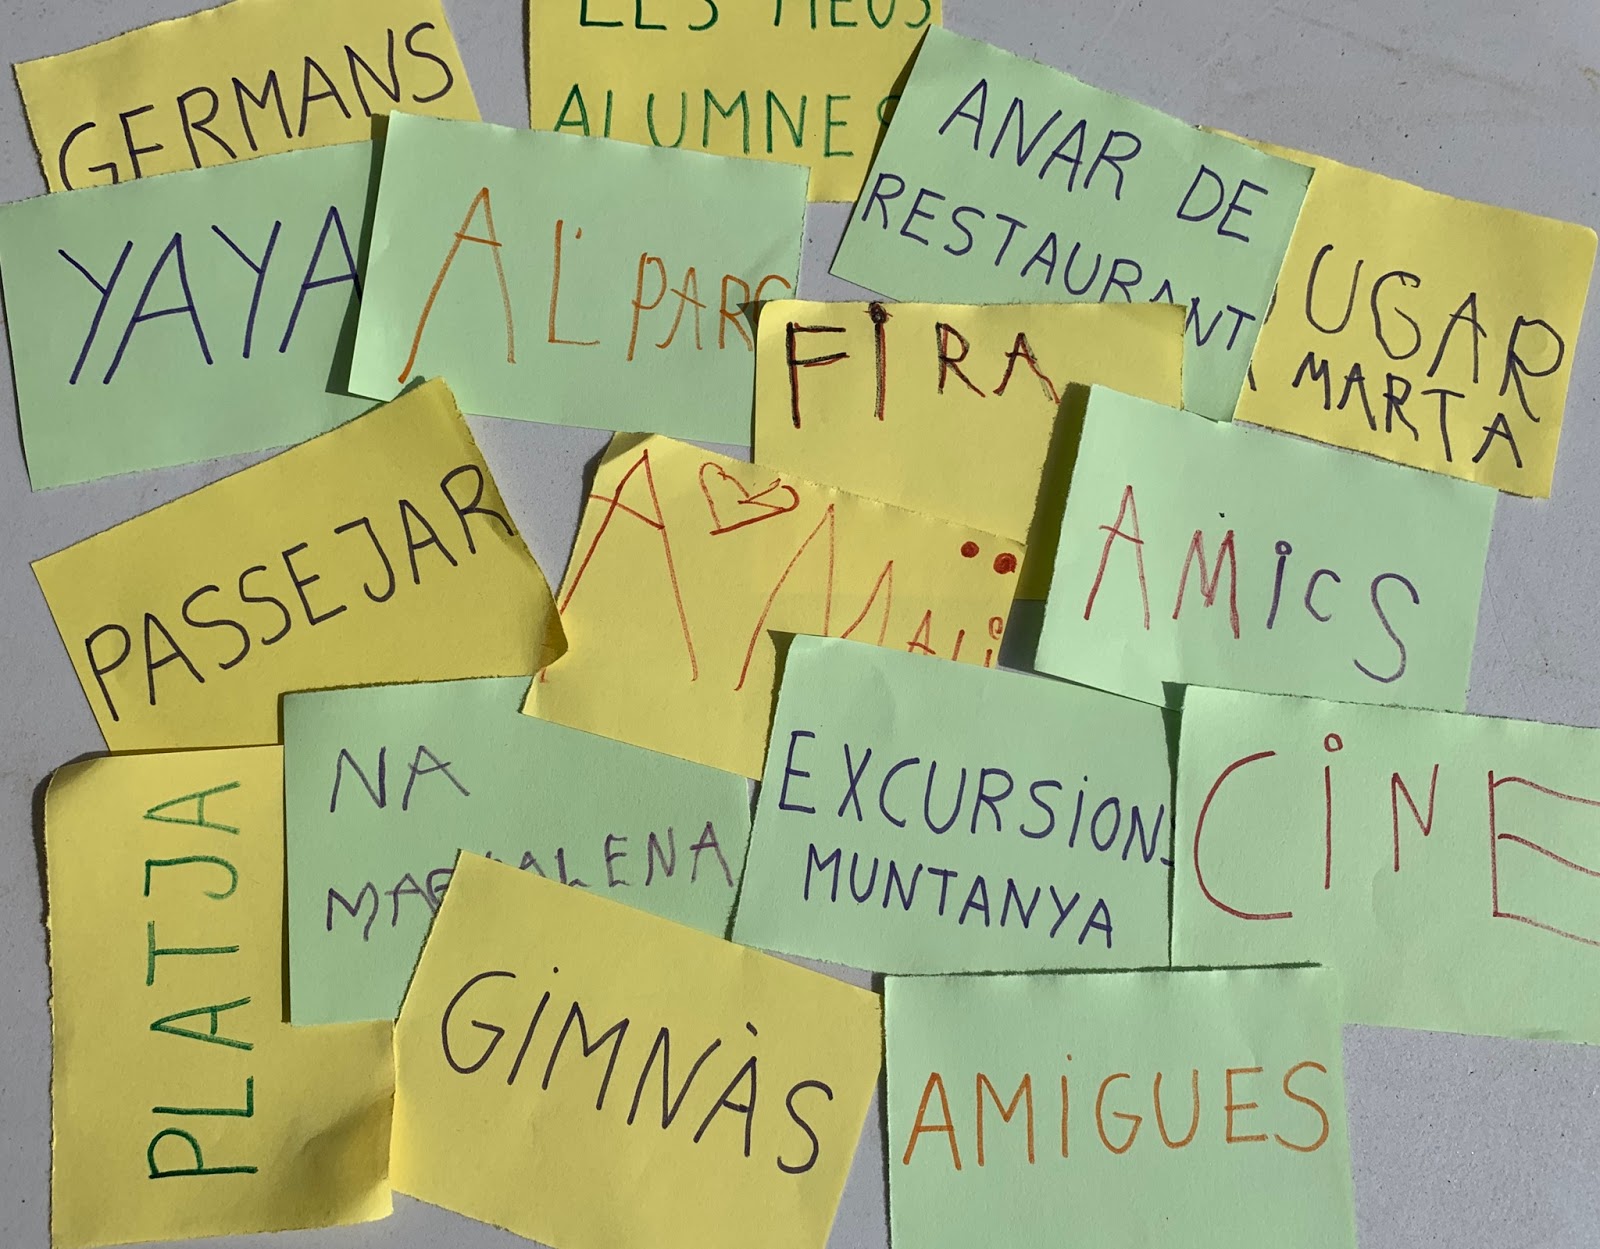 GERMANS
ELS MEUS
ALUMNES
ANAR DE
RESTAURANT
YAYA
AL PARC
UGAR
MARTA
FIRA
PASSEJAR
A
MALI
AMICS
NA
MAGDALENA
EXCURSION
MUNTANYA
CINE
PLATJA
GIMNÀS
AMIGUES